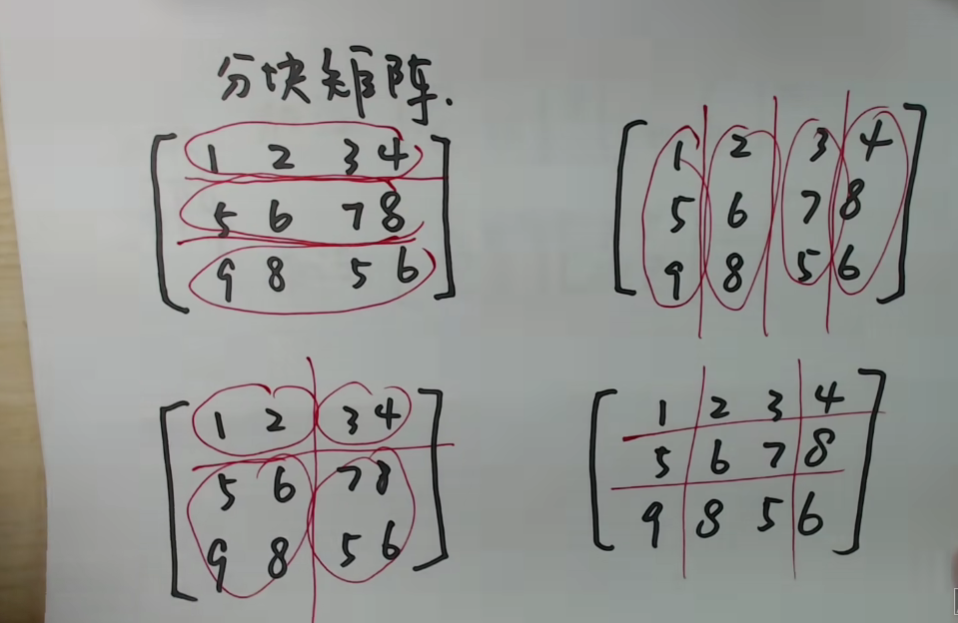 分块矩阵.
1 2 3 4
5 6 7 8
9 8 5 6
1 2 3 4
5 6 7 8
9 8 5 6
1 2 3 4
5 6 7 8
9 8 5 6
1 2 3 4
5 6 7 8
9 8 5 6